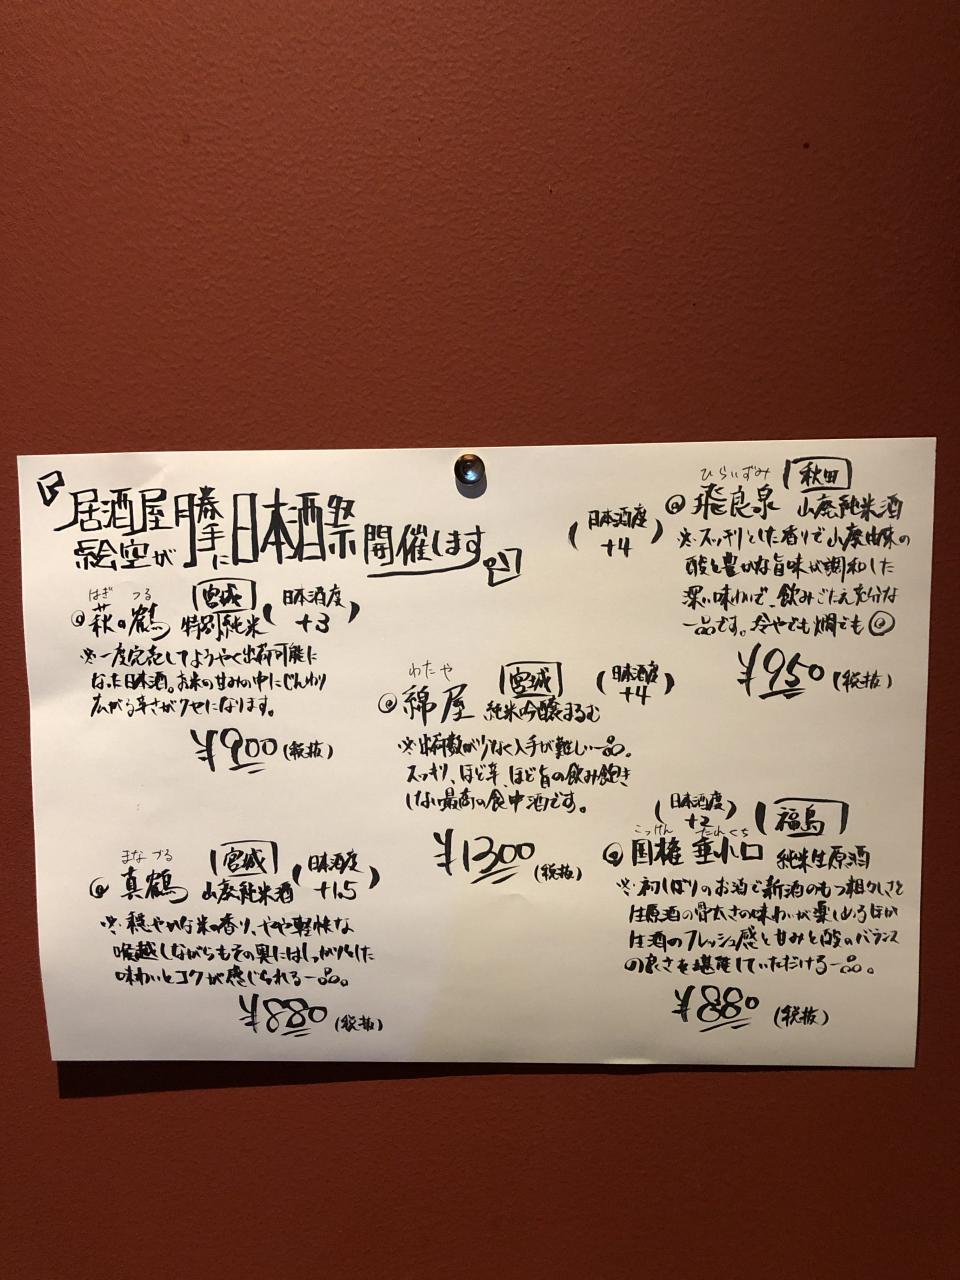 『居酒屋絵空が勝手に日本酒祭開催します。』
はぎ つる
萩の鶴
宮城
特別純米
(日本酒度 +3)
※一度完売してようやく出荷可能に
なった日本酒。お米の甘みの中にじんわり
広がる辛さがクセになります。
¥900(税抜)
まなづる
真鶴
宮城
山廃純米酒
(日本酒度 +1.5)
※穏やかな米の香り、やや軽快な
喉越しながらもその奥にはしっかりとした
味わいとコクが感じられる一品。
¥880(税抜)
わたや
綿屋
宮城
純米吟醸まるむ
(日本酒度 +4)
※出荷数が少なく入手が難しい一品。
スッキリ、ほど辛、ほど旨の飲み飽き
しない最高の食中酒です。
¥1300(税抜)
ひらいずみ
飛良泉
秋田
山廃純米酒
(日本酒度 +4)
※スッキリとした香りで山廃由来の
酸と豊かな旨味が調和した
深い味わいで、飲みごたえ充分な
一品です。冷やでも燗でも◎
¥950(税抜)
(日本酒度 +2)
福島
こっけん たれくち
国権 垂れ口
純米生原酒
※初しぼりのお酒で新酒のもつ粗々しさと
生原酒の骨太さの味わいが楽しめるほか
生酒のフレッシュ感と甘みと酸のバランス
の良さを堪能していただける一品。
¥880(税抜)